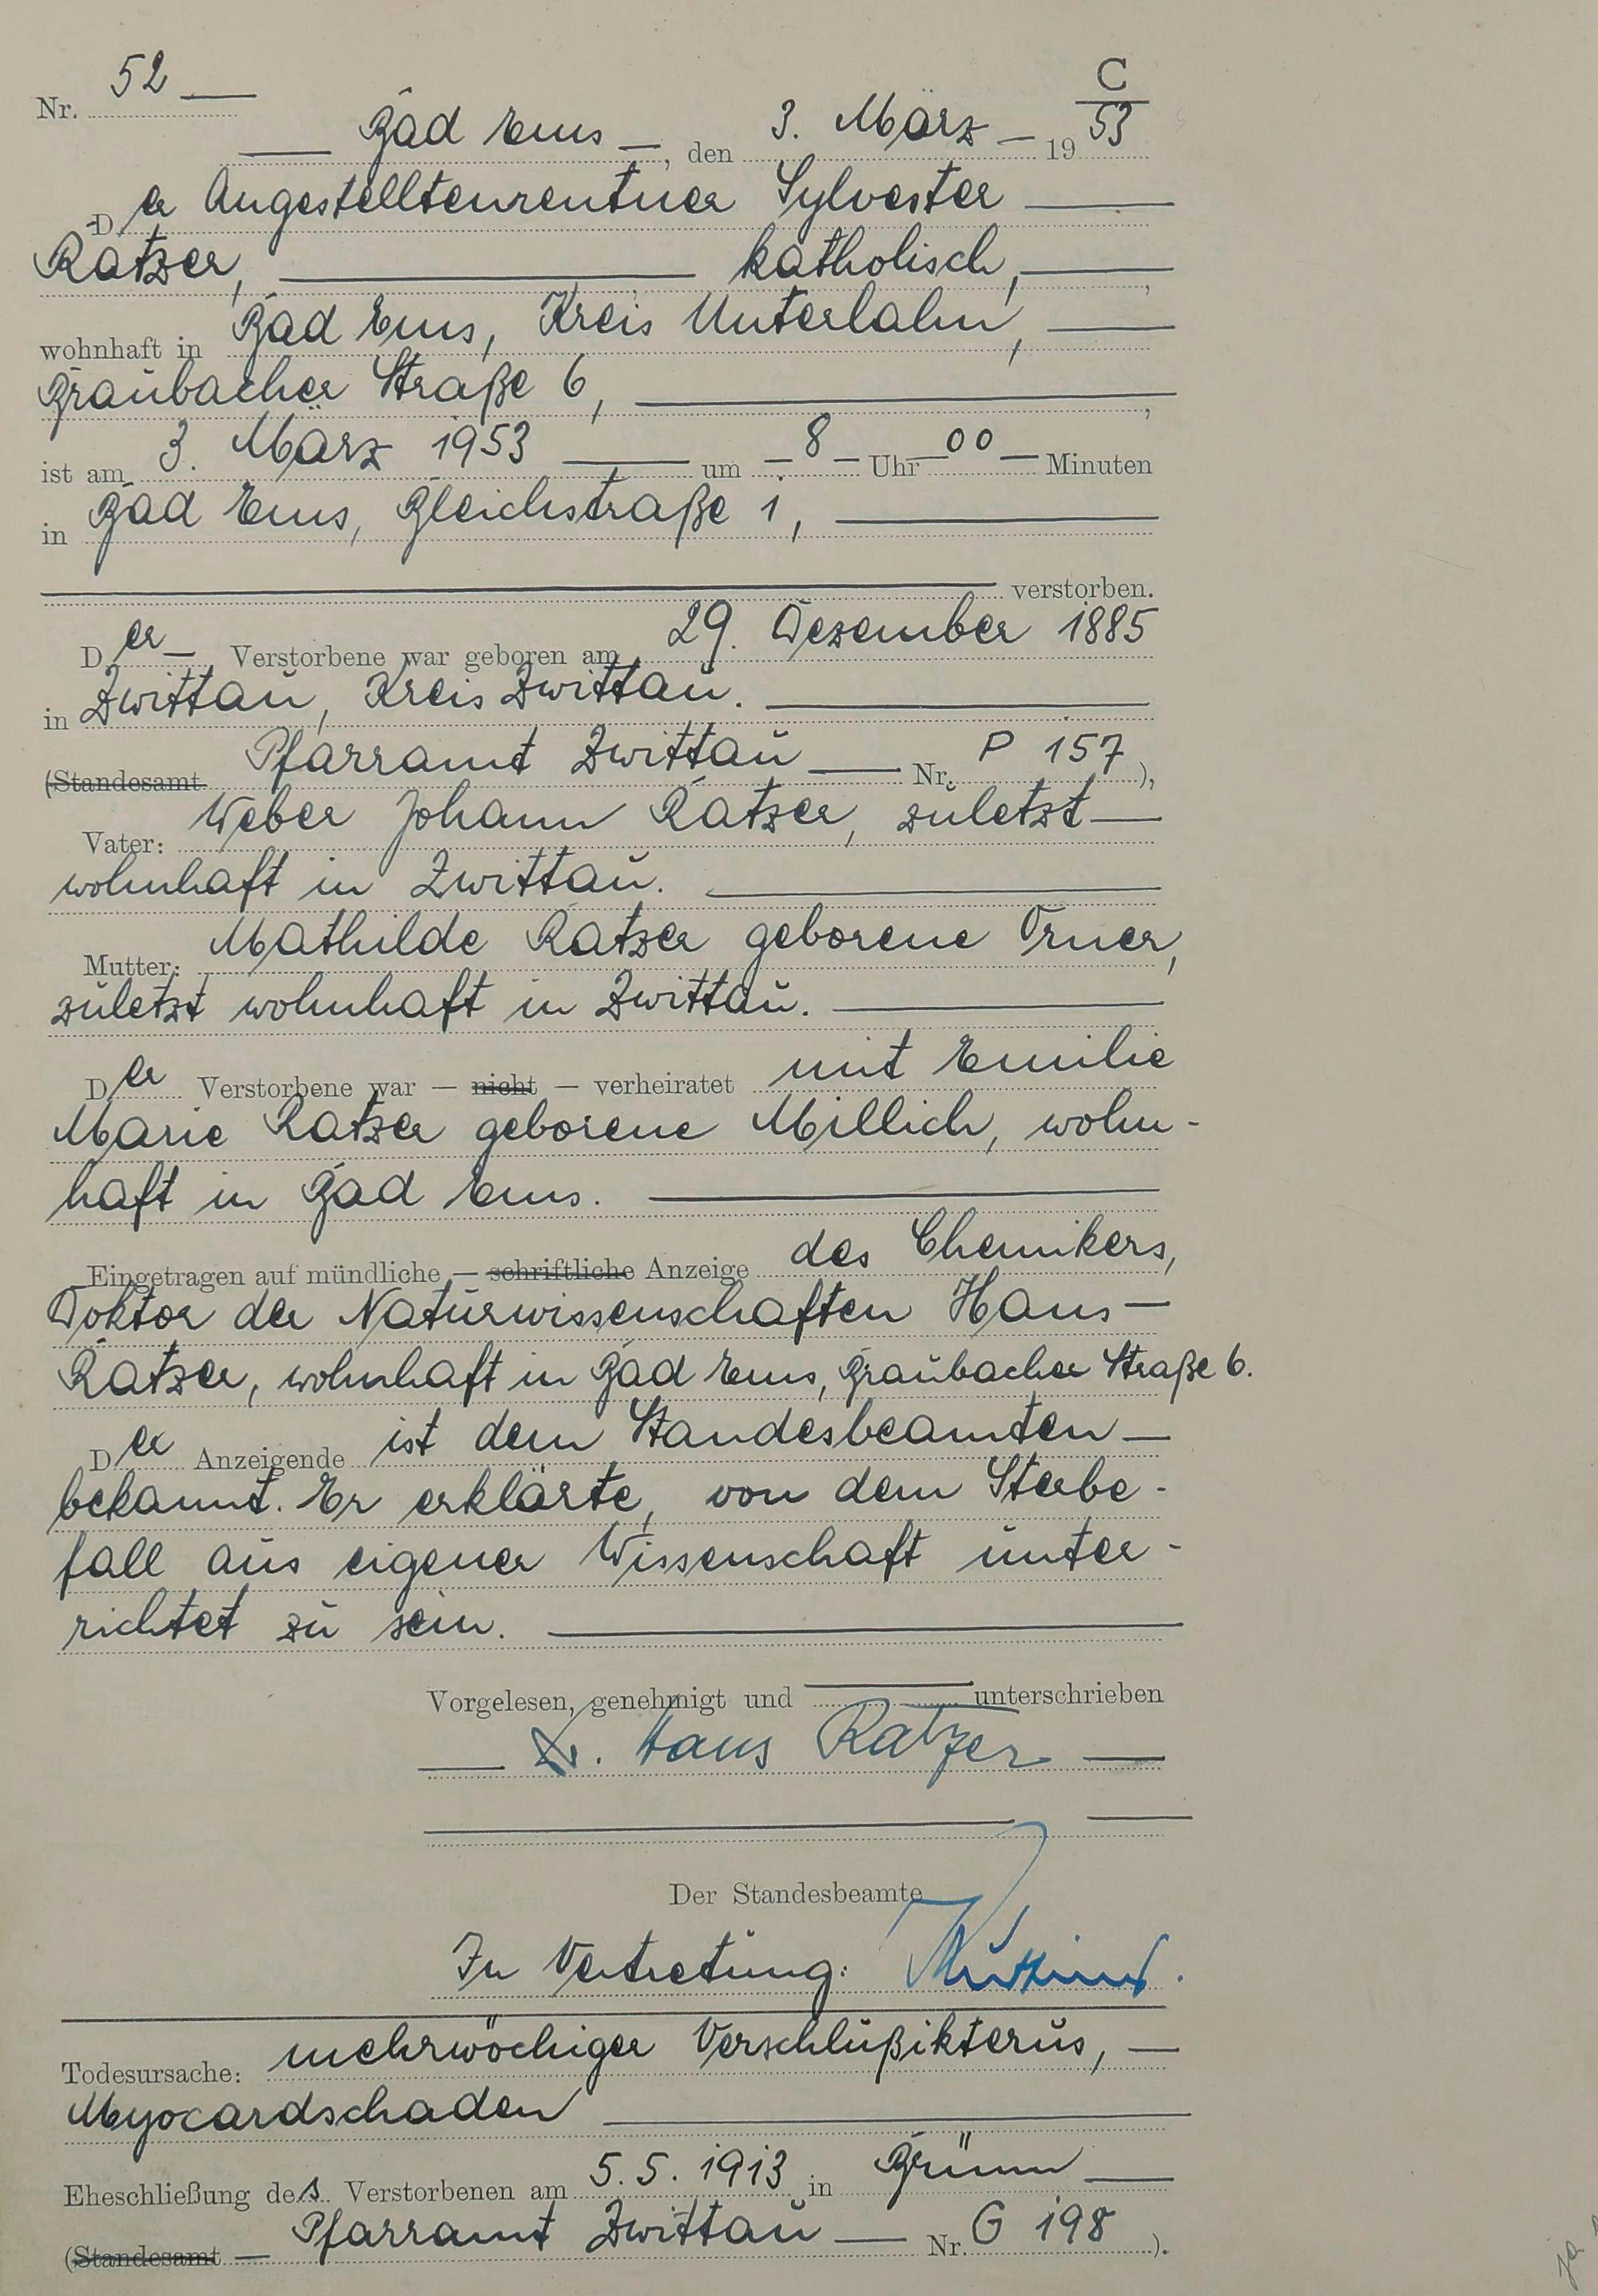 C
Nr. 52
Bad Ems, den 3. März 1953
Der Angestelltenrentner Sylvester
Ratzer, katholisch,
wohnhaft in Bad Ems, Kreis Unterlahn,
Braubacher Straße 6,
ist am 3. März 1953 um 8 Uhr 00 Minuten
in Bad Ems, Bleichstraße 1,
verstorben.
Der Verstorbene war geboren am 29. Dezember 1885
in Zwittau, Kreis Zwittau.
(Standesamt Pfarramt Zwittau Nr. P 157),
Vater: Weber Johann Ratzer, zuletzt
wohnhaft in Zwittau.
Mutter: Mathilde Ratzer geborene Orner,
zuletzt wohnhaft in Zwittau.
Der Verstorbene war — nicht — verheiratet mit Emilie
Marie Ratzer geborene Millich, wohn-
haft in Bad Ems.
Eingetragen auf mündliche — schriftliche Anzeige des Chemikers,
Doktor der Naturwissenschaften Hans
Ratzer, wohnhaft in Bad Ems, Braubacher Straße 6.
Der Anzeigende ist dem Standesbeamten
bekannt. Er erklärte, von dem Sterbe-
fall aus eigener Wissenschaft unter-
richtet zu sein.
Vorgelesen, genehmigt und unterschrieben
Dr. Hans Ratzer
Der Standesbeamte
In Vertretung:
Todesursache: mehrwöchiger Verschlußikterus,
Myocardschaden
Eheschließung des Verstorbenen am 5.5.1913 in Brünn
(Standesamt — Pfarramt Zwittau Nr. G 198).